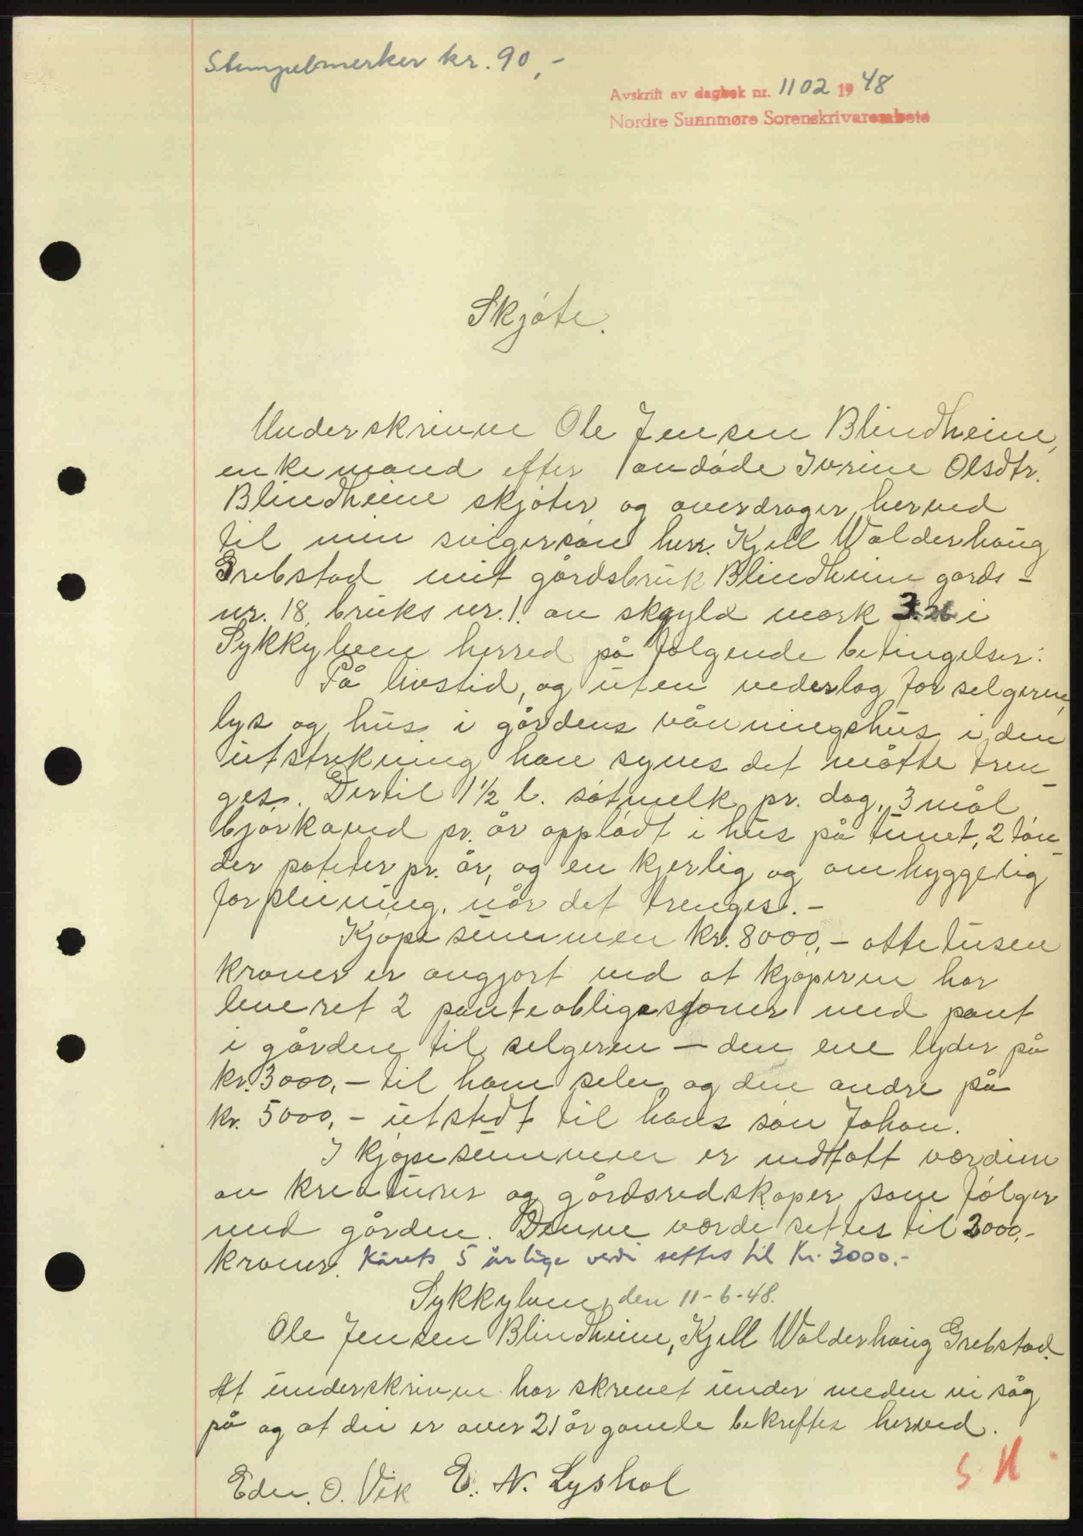 Stempelmerker kr. 90,-
Avskrift av dagbok nr. 1102 1948
Nordre Sunnmøre Sorenskrivarembete
Skjøte.
Underskrivne Ole Jensen Blindheim,
enkemand efter avdøde Ivrine Olsdtr.
Blindheim skjøter og overdrager herved
til min svigersøn herr. Kjell Walderhaug
Grebstad mit gårdsbruk Blindheim gards-
nr. 18, bruks nr. 1. av skyld mark 3.26 i
Sykkylven herred på følgende betingelser:
På livstid, og uten vederlag for selgeren,
lys og hus i gårdens våningshus i den
utstrekning han synes det måtte tren-
ges. Dertil 1½ l. søtmelk pr. dag, 3 mål
bjørkaved pr. år opplødt i hus på tunet, 2 tøn-
der poteter pr. år, og en kjerlig og omhyggelig
forpleining, når det trenges.-
Kjøpesummen kr. 8000,- ottetusen
kroner er avgjort ved at kjøperen har
leveret 2 panteobligasjoner med pant
i gården til selgeren - den ene lyder på
kr. 3000,- til ham selv, og den andre på
kr. 5000,- utstedt til hans søn Johan.
I kjøpesummen er medtatt værdien
av kreaturer og gårdsredskaper som følger
med gården. Denne værdi settes til 3000,-
kroner. Kårets 5 årlige verdi settes til Kr. 3000.-
Sykkylven, den 11-6-48.
Ole Jensen Blindheim, Kjell Walderhaug Grebstad.
At underskrivne har skrevet under meden vi såg
på og at di er over 21 år gamle bekreftes herved.
Edv. O. Vik E. N. Lyshol